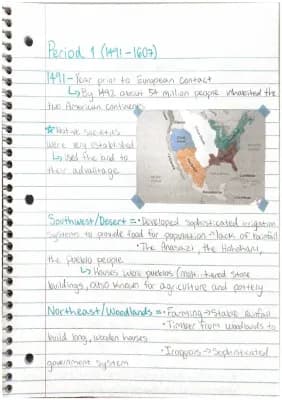 Period 1 (1491-1607)
1491- Year prior to European contact
↳ By 1492 about 54 million people inhabited the
two American continents
☆ Native societies
were very established
↳ used the land to
their advantage
Southwest/Desert = • Developed sophisticated irrigation
systems to provide food for population → lack of rainfall
• The Anasazi, the Hohokam,
the Pueblo people
↳ Homes were pueblos (multi-tiered stone
buildings, also known for agriculture and pottery
Northeast/Woodlands = • Farming → Stable rainfall
• Timber from woodlands to
build long, wooden homes
• Iroquois → Sophisticated
government system